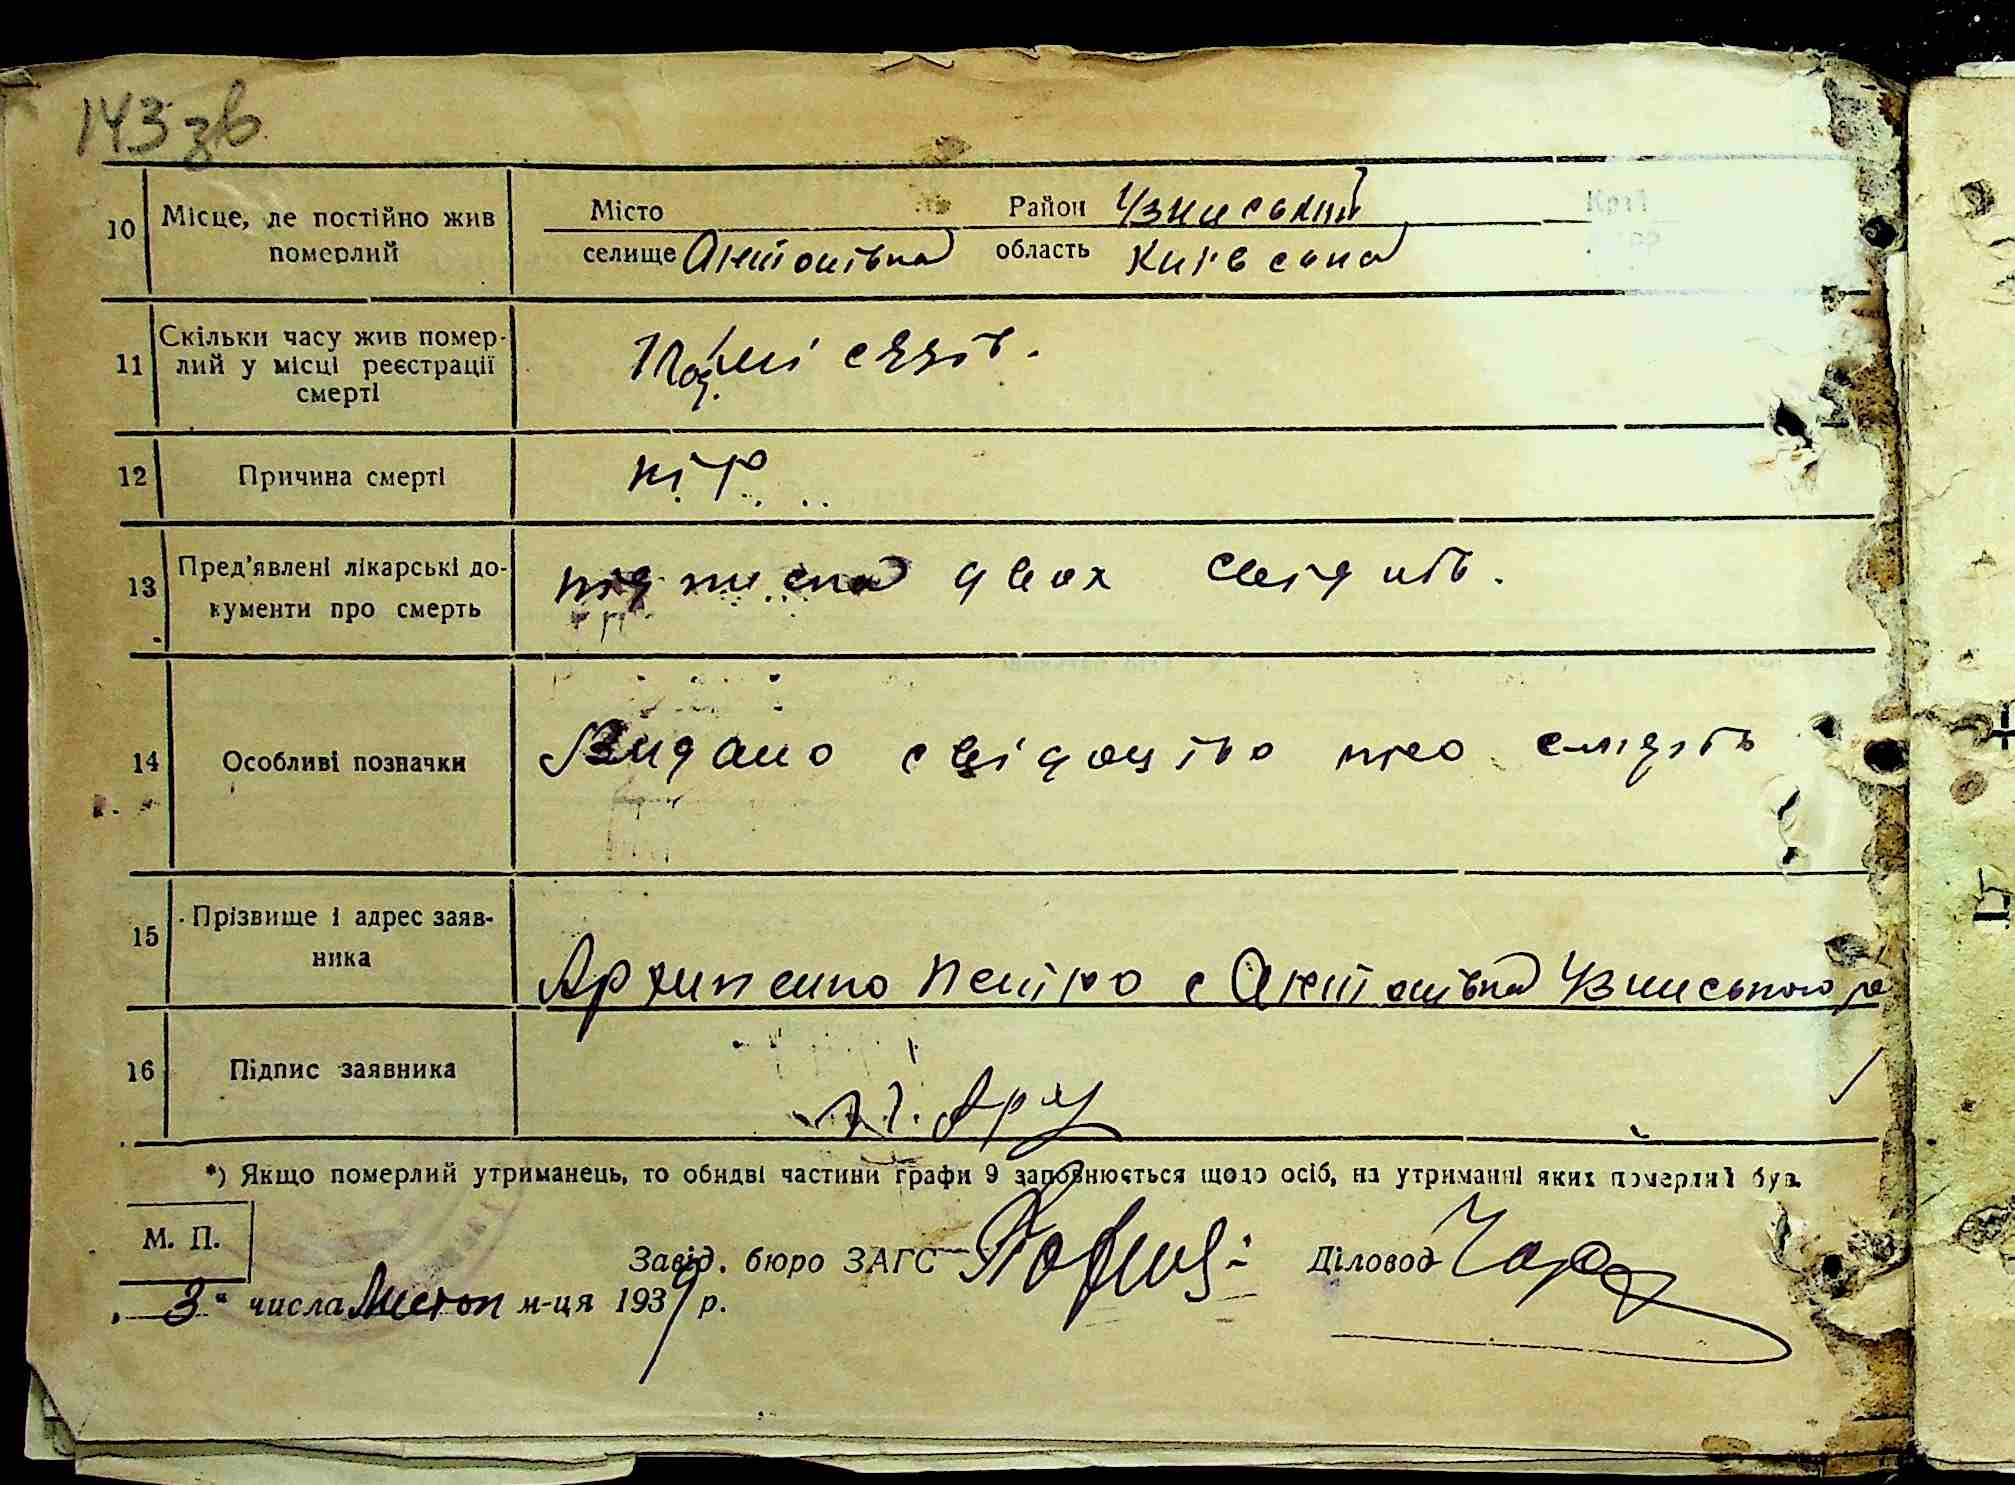 143 зв
10 Місце, де постійно жив померлий Місто Район Узинський Край
селище Антонівка область Київська
11 Скільки часу жив помер-
лий у місці реєстрації
смерті
12 Причина смерті кір
13 Пред'явлені лікарські до-
кументи про смерть підписка двох свідків.
14 Особливі позначки Видано свідоцтво про смерть
15 Прізвище і адрес заяв-
ника Архипенко Петро с Антонівка Узинського р
16 Підпис заявника Арх
*) Якщо померлий утриманець, то обидві частини графи 9 заповнюється щодо осіб, на утриманні яких померлий був.
М. П.
Завід. бюро ЗАГС Діловод
„3" числа Листоп м-ця 1939 р.